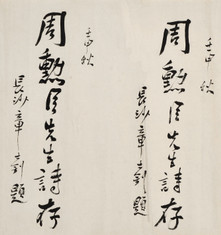 周勳臣先生詩存
壬申秋
長沙章士釗題
周勳臣先生詩存
壬申秋
長沙章士釗題